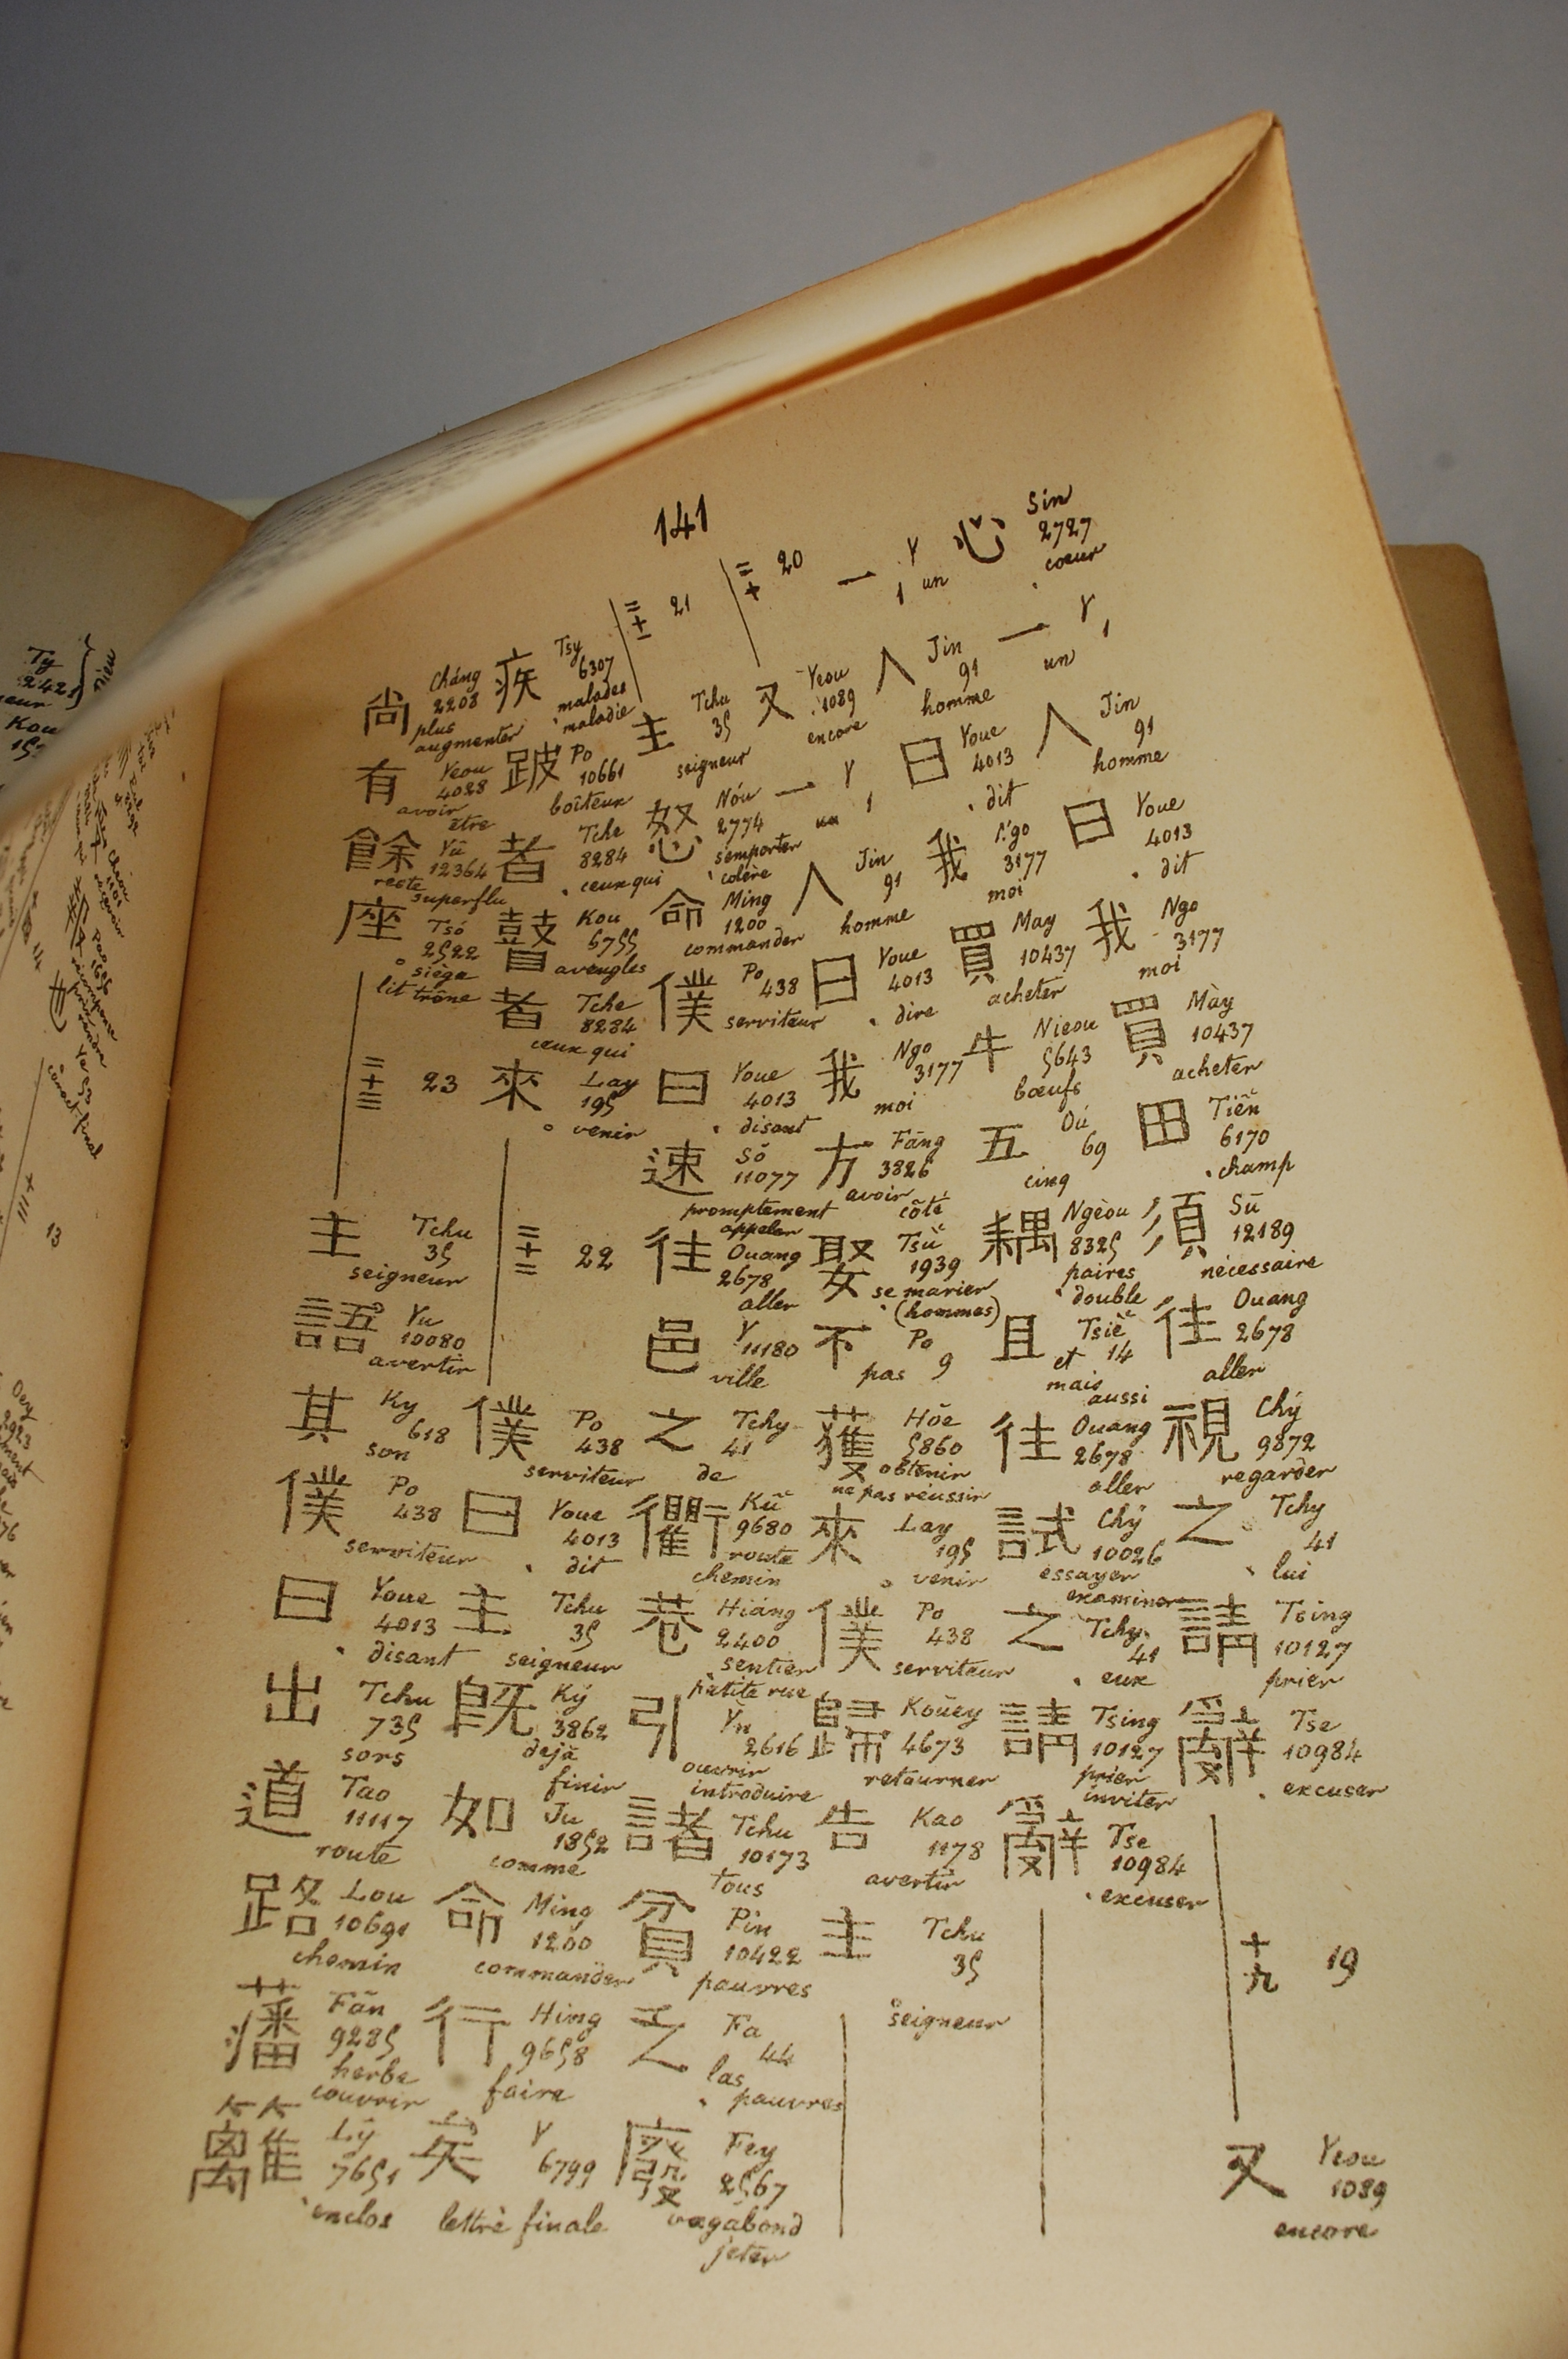 141
心 Sin 2727 cœur
一 Y 1 un
人 Jin 91 homme
曰 Youe 4013 dit
我 Ngo 3177 moi
買 Mày 10437 acheter
田 Tiên 6170 champ
須 Sū 12189 nécessaire
往 Ouang 2678 aller
視 Chý 9872 regarder
之 Tchy 41 lui
請 Tsing 10127 prier
辭 Tse 10984 excuser
十九 19
又 Yeou 1089 encore
一 Y 1 un
人 Jin 91 homme
曰 Youe 4013 dit
我 Ngo 3177 moi
買 May 10437 acheter
牛 Nieou 5643 bœufs
五 Oú 69 cinq
耦 Ngèou 8325 paires double
且 Tsiè 14 et mais aussi
往 Ouang 2678 aller
試 Chý 10026 essayer examiner
之 Tchy 41 eux
請 Tsing 10127 prier inviter
辭 Tse 10984 excuser
二十 20
又 Yeou 1089 encore
一 Y 1 un
人 Jin 91 homme
曰 Youe 4013 dire
我 Ngo 3177 moi
方 Fāng 3826 avoir côté
娶 Tsü 1939 se marier (hommes)
不 Po 9 pas
獲 Hŏe 5860 obtenir ne pas réussir
來 Lay 195 venir
僕 Po 438 serviteur
歸 Koūey 4673 retourner
告 Kao 1178 avertir
主 Tchu 35 seigneur
二十一 21
主 Tchu 35 seigneur
怒 Nóu 2774 s'emporter colère
命 Ming 1200 commander
僕 Po 438 serviteur
曰 Youe 4013 disant
速 Sŏ 11077 promptement appeler
往 Ouang 2678 aller
邑 Y 11180 ville
之 Tchy 41 de
衢 Kū 9680 route chemin
巷 Hiáng 2400 sentier petite rue
引 Yn 2616 ouvrir introduire
諸 Tchu 10173 tous
貧 Pin 10422 pauvres
乏 Fa 44 las pauvres
廢 Fey 2567 vagabond jeter
疾 Tsy 6307 malades maladie
跛 Po 10661 boiteux
者 Tche 8284 ceux qui
瞽 Kou 6755 aveugles
者 Tche 8284 ceux qui
來 Lay 195 venir
二十二 22
僕 Po 438 serviteur
曰 Youe 4013 dit
主 Tchu 35 seigneur
既 Ký 3862 dejà finir
如 Ju 1852 comme
命 Ming 1200 commander
行 Hing 9658 faire
矣 Y 6799 lettre finale
尚 Cháng 2208 plus augmenter
有 Yeou 4028 avoir être
餘 Yū 12364 reste superflu
座 Tsó 2522 siège lit trône
二十三 23
主 Tchu 35 seigneur
語 Yu 10080 avertir
其 Ky 618 son
僕 Po 438 serviteur
曰 Youe 4013 disant
出 Tchu 735 sors
道 Tao 11117 route
路 Lou 10691 chemin
藩 Fān 9285 herbe couvrir
籬 Lý 7651 enclos